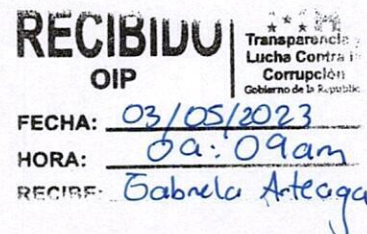 RECIBIDO
OIP
Transparencia y
Lucha Contra la
Corrupción
Gobierno de la República
FECHA: 03/05/2023
HORA: 0a:09am
RECIBE: Gabriela Arteaga